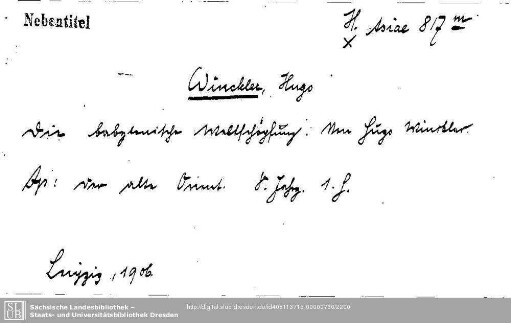 Nebentitel
H. Asiae 817 m
x
Winckler, Hugo
Die babylonische Weltschöpfung. Von Hugo Winckler.
In: Der alte Orient. 8. Jahrg. 1. H.
Leipzig, 1906
Sächsische Landesbibliothek –
Staats- und Universitätsbibliothek Dresden